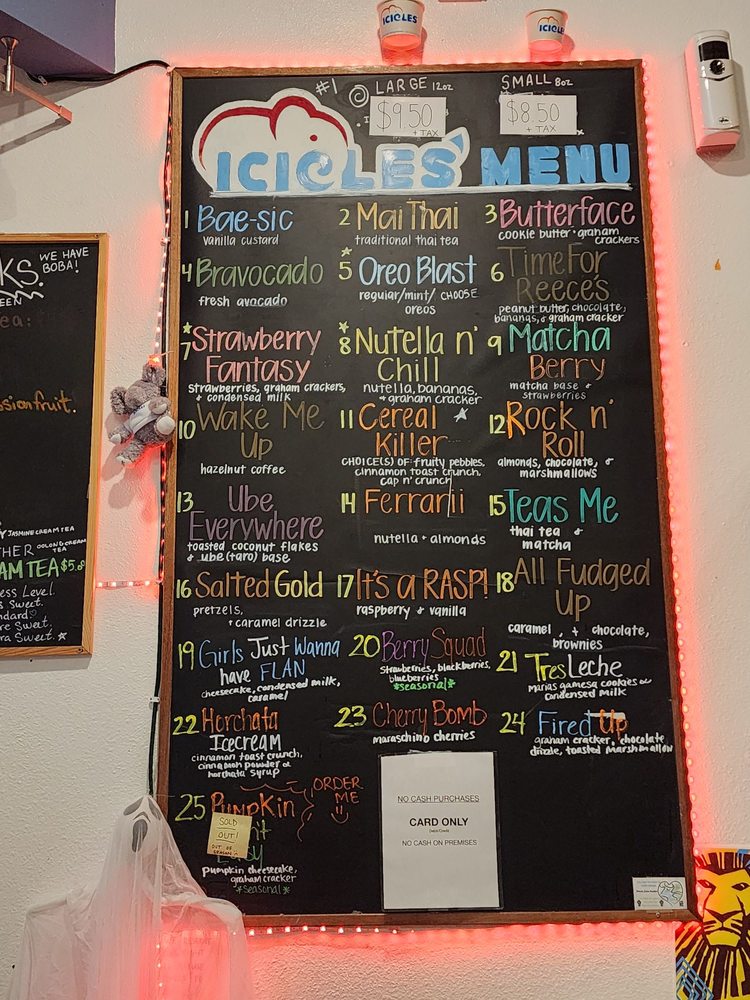 ICICLES
ICICLES
#1 LARGE 12oz
$9.50
+ TAX
SMALL 8oz
$8.50
+ TAX
ICICLES MENU
1 Bae-sic
vanilla custard
2 Mai Thai
traditional thai tea
3 Butterface
cookie butter + graham
crackers
4 Bravocado
fresh avocado
5 Oreo Blast
regular/mint/ CHOOSE
oreos
6 Time For
Reece's
peanut butter, chocolate,
bananas, & graham cracker
7 Strawberry
Fantasy
strawberries, graham crackers,
& condensed milk
8 Nutella n'
Chill
nutella, bananas,
& graham cracker
9 Matcha
Berry
matcha base &
strawberries
10 Wake Me
Up
hazelnut coffee
11 Cereal
Killer
CHOICE(S) OF fruity pebbles,
cinnamon toast crunch,
cap n' crunch
12 Rock n'
Roll
almonds, chocolate, &
marshmallows
13 Ube
Everywhere
toasted coconut flakes
& ube (taro) base
14 Ferrarii
nutella + almonds
15 Teas Me
thai tea &
matcha
16 Salted Gold
pretzels,
+ caramel drizzle
17 It's a RASP!
raspberry & vanilla
18 All Fudged
Up
caramel, + chocolate,
brownies
19 Girls Just Wanna
have FLAN
cheesecake, condensed milk,
caramel
20 Berry Squad
strawberries, blackberries,
blueberries
*seasonal*
21 Tres Leche
marias gamesa cookies &
condensed milk
22 Horchata
Icecream
cinnamon toast crunch,
cinnamon powder &
horchata syrup
23 Cherry Bomb
maraschino cherries
24 Fired Up
graham cracker, chocolate
drizzle, toasted marshmallow
25 Pumpkin
ORDER
ME
SOLD
OUT!
OUT OF
pumpkin cheesecake,
graham cracker
*seasonal*
NO CASH PURCHASES
CARD ONLY
NO CASH ON PREMISES
WE HAVE
BOBA!
ssionfruit.
JASMINE CREAM TEA
THER OOLONG CREAM
TEA
AM TEA $5.8
ess Level.
s Sweet.
ndard
re Sweet.
ra Sweet.